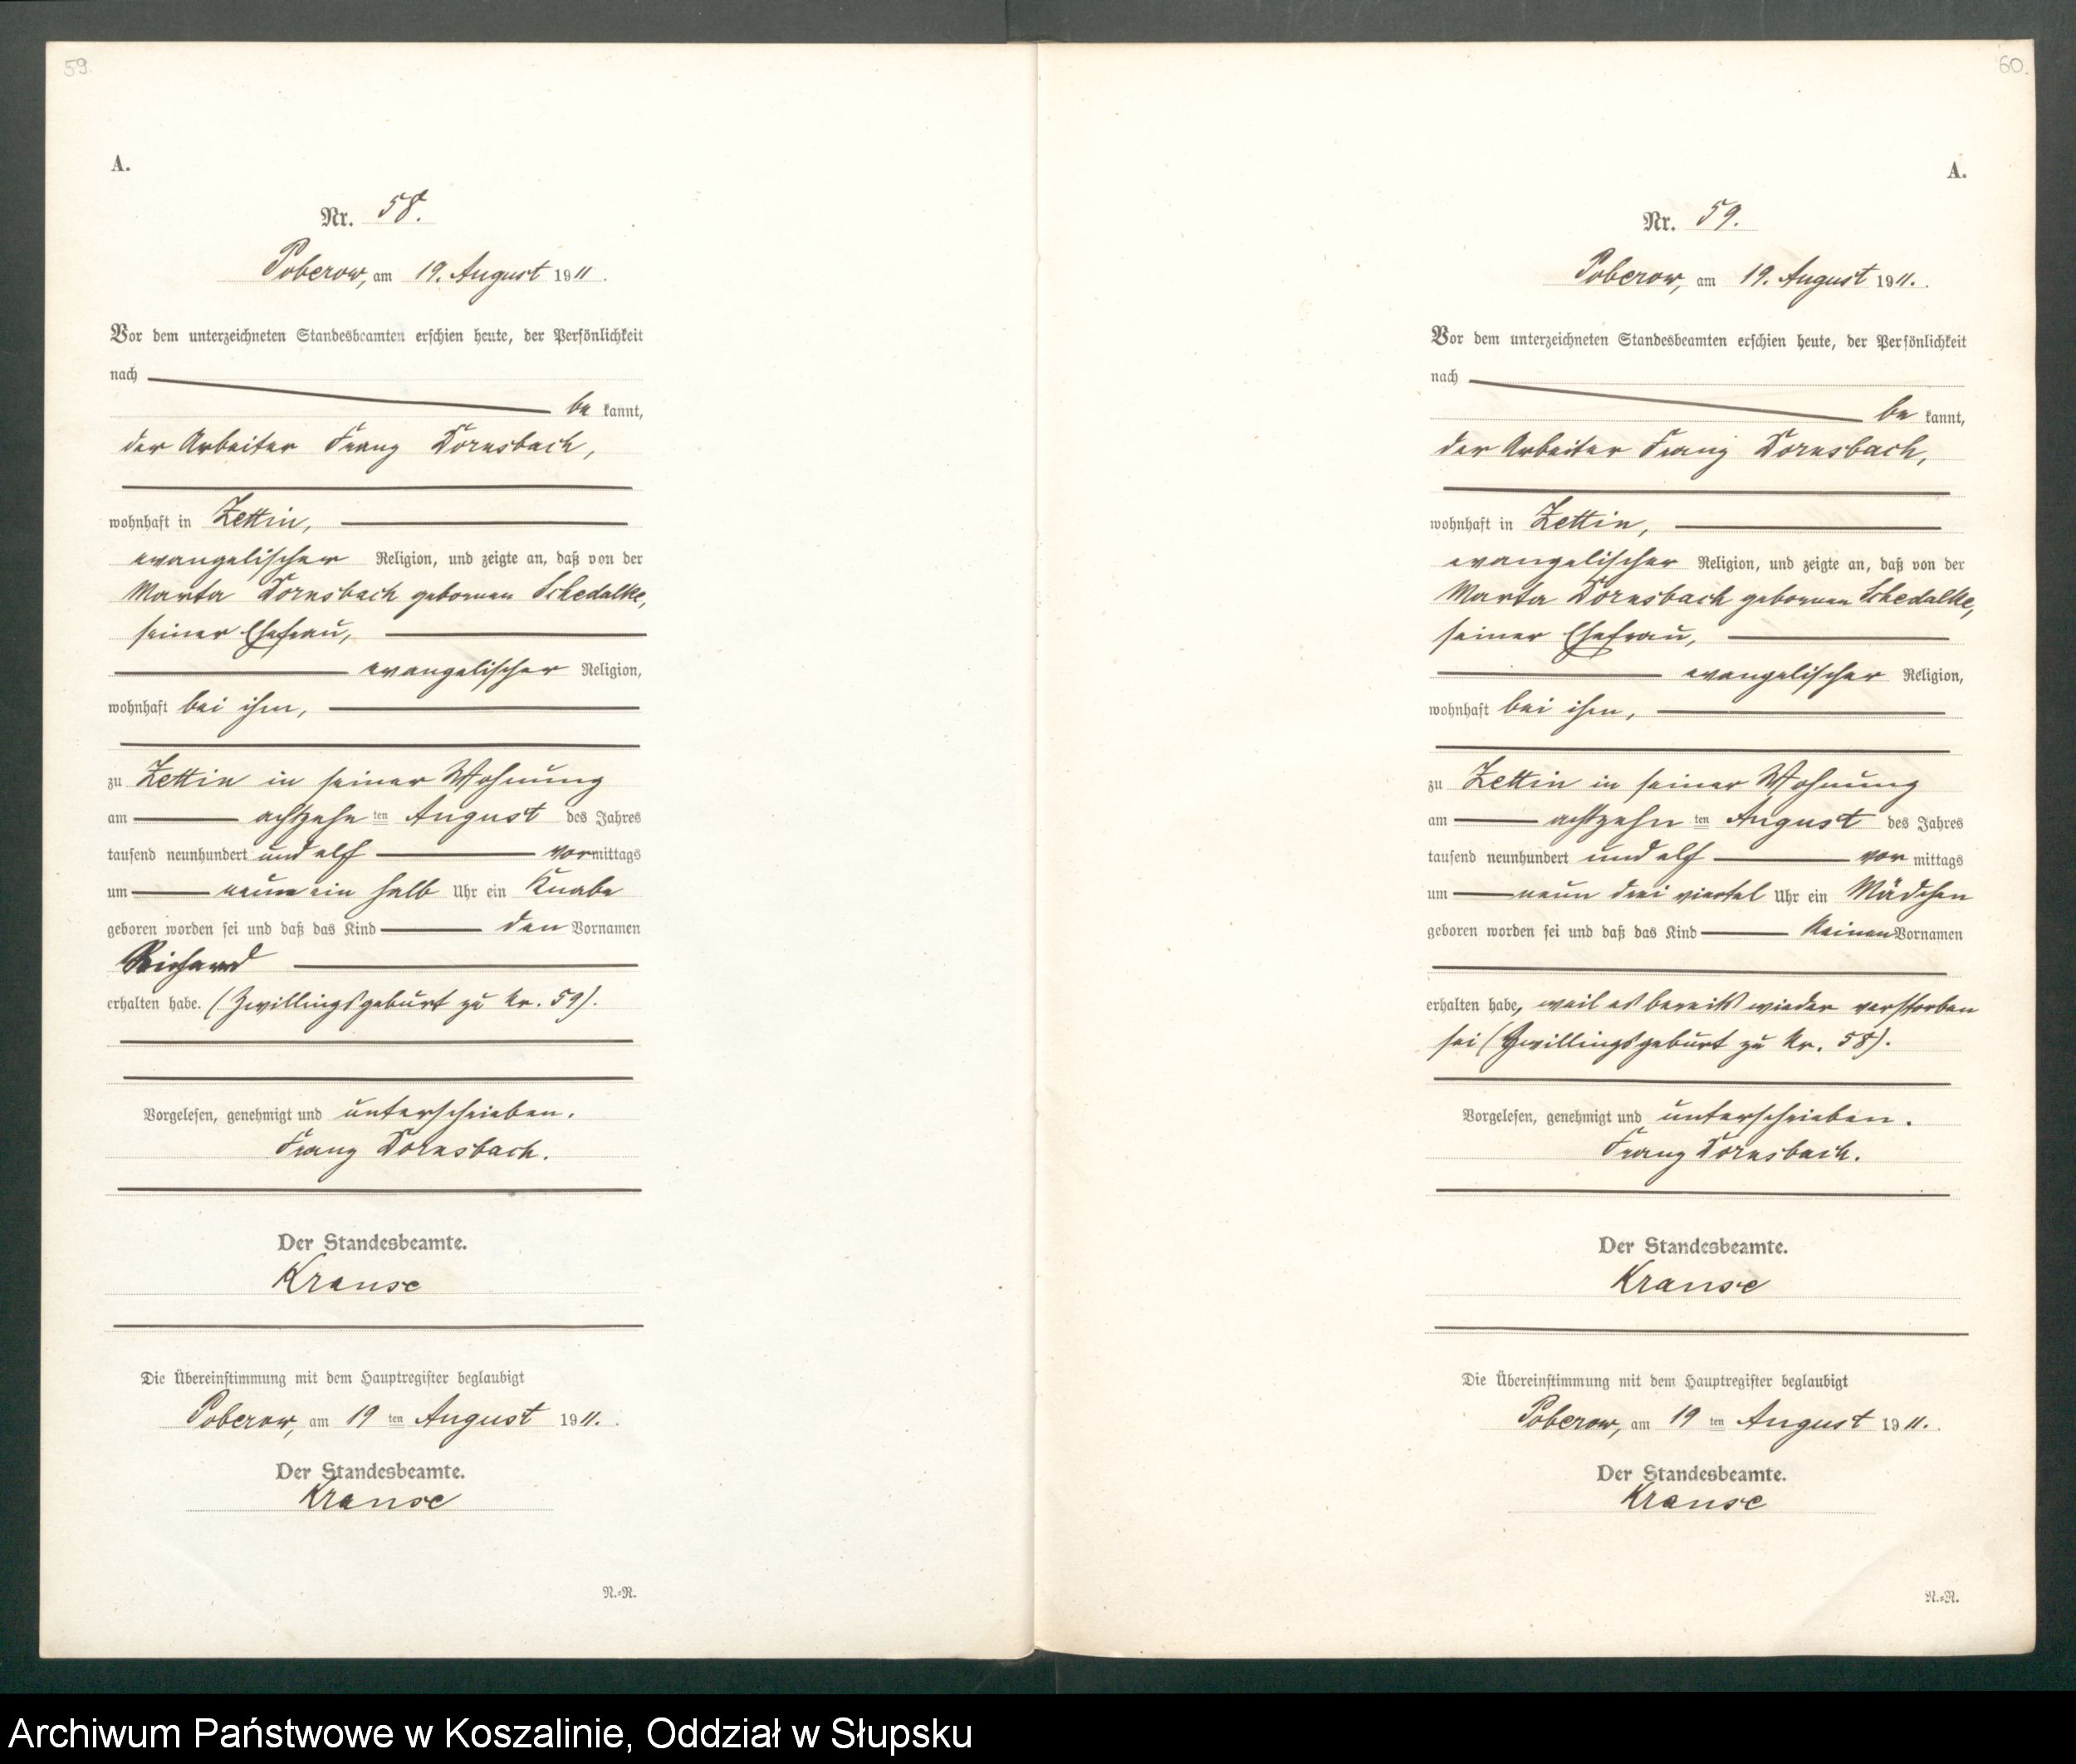 59.
A.
Nr. 58.
Poberow, am 19. August 1911.
Vor dem unterzeichneten Standesbeamten erschien heute, der Persönlichkeit
nach
be kannt,
der Arbeiter Franz Dornsbach,
wohnhaft in Zettin,
evangelischer Religion, und zeigte an, daß von der
Marta Dornsbach gebornen Schedalke,
seiner Ehefrau,
evangelischer Religion,
wohnhaft bei ihm,
zu Zettin in seiner Wohnung
am achtzehn ten August des Jahres
tausend neunhundert und elf vormittags
um neun ein halb Uhr ein Knabe
geboren worden sei und daß das Kind den Vornamen
Richard
erhalten habe. (Zwillingsgeburt zu Nr. 59).
Vorgelesen, genehmigt und unterschrieben.
Franz Dornsbach.
Der Standesbeamte.
Krause
Die Übereinstimmung mit dem Hauptregister beglaubigt
Poberow, am 19 ten August 1911.
Der Standesbeamte.
Krause
N.=N.
60.
A.
Nr. 59.
Poberow, am 19. August 1911.
Vor dem unterzeichneten Standesbeamten erschien heute, der Persönlichkeit
nach
be kannt,
der Arbeiter Franz Dornsbach,
wohnhaft in Zettin,
evangelischer Religion, und zeigte an, daß von der
Marta Dornsbach gebornen Schedalke,
seiner Ehefrau,
evangelischer Religion,
wohnhaft bei ihm,
zu Zettin in seiner Wohnung
am achtzehn ten August des Jahres
tausend neunhundert und elf vor mittags
um neun drei viertel Uhr ein Mädchen
geboren worden sei und daß das Kind keinen Vornamen
erhalten habe, weil es bereits wieder verstorben
sei (Zwillingsgeburt zu Nr. 58).
Vorgelesen, genehmigt und unterschrieben.
Franz Dornsbach.
Der Standesbeamte.
Krause
Die Übereinstimmung mit dem Hauptregister beglaubigt
Poberow, am 19 ten August 1911.
Der Standesbeamte.
Krause
N.=N.
Archiwum Państwowe w Koszalinie, Oddział w Słupsku